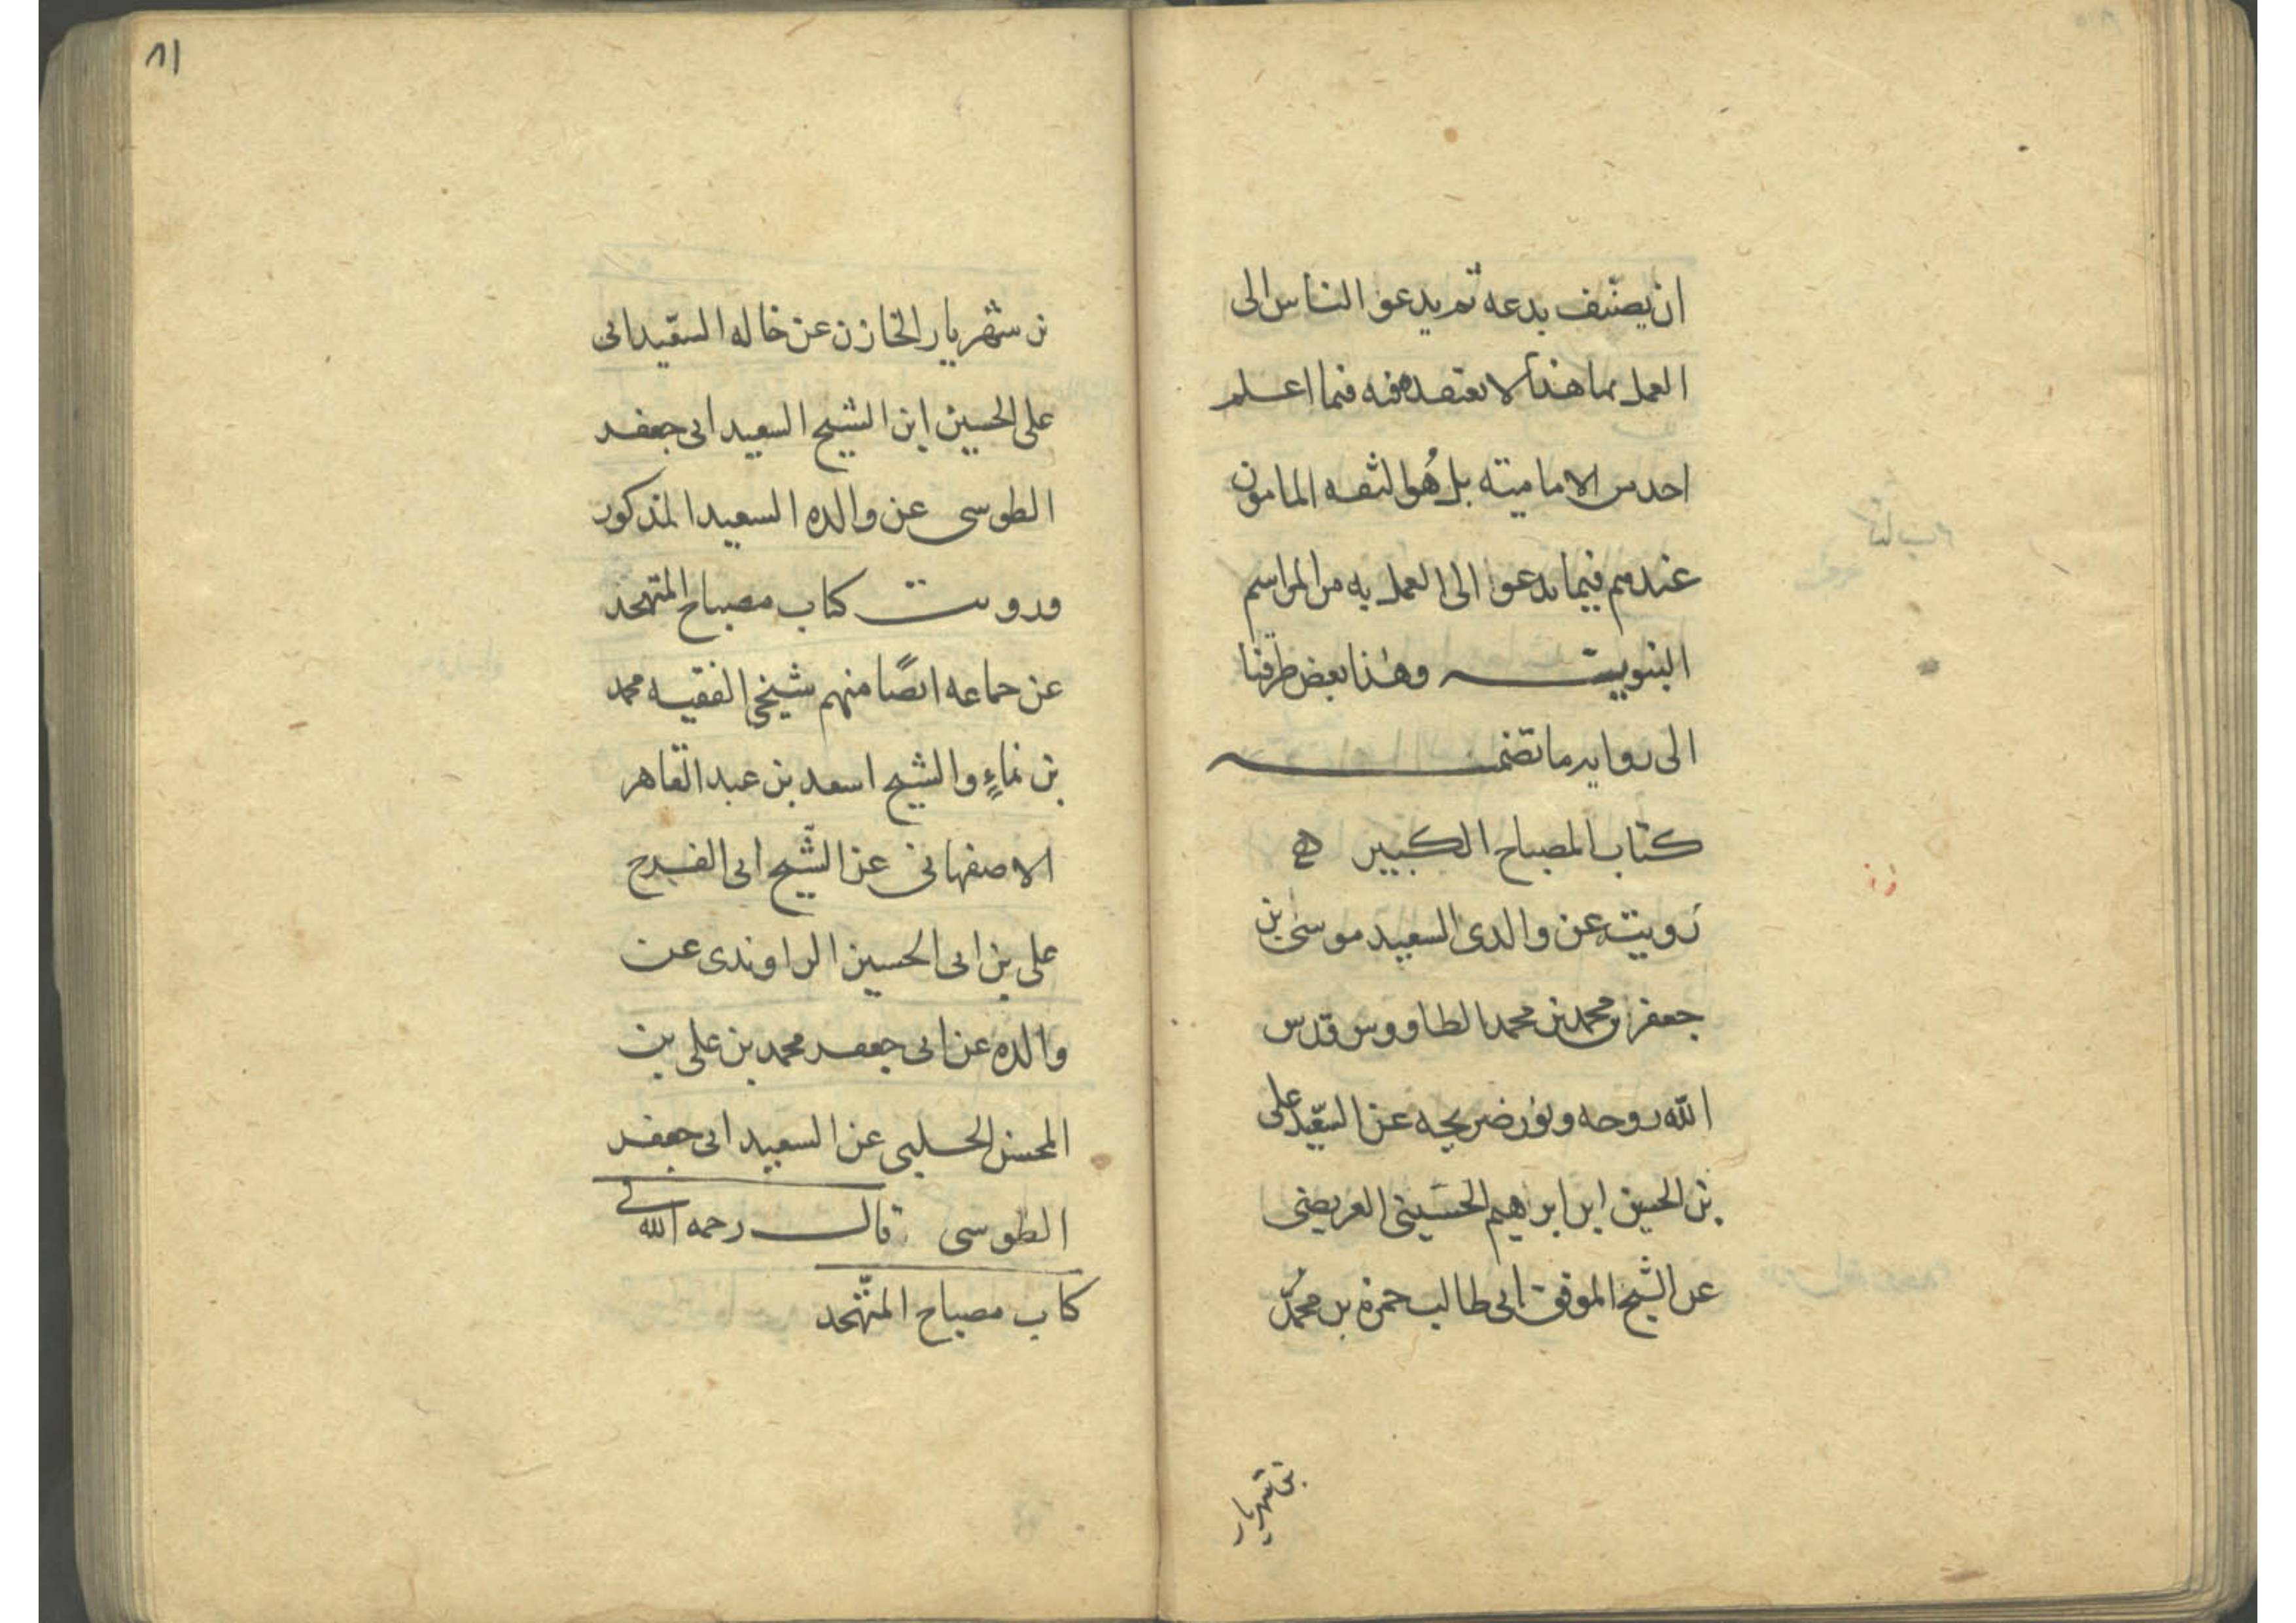 ان يصنّف بدعه ثم يدعو الناس الى
العمل بها هذا لا يعتقده فيه فيما اعلم
احد من الاماميّة بل هُو الثقه المامون
عندهم فيما يدعوا الى العمل به من المراسم
النبوييّة وهٰذا بعض طرقنا
الى روايه ما تضمنه
كتاب المصباح الكبير
رويت عن والدى السعيد موسى بن
جعفر بن محمد بن محمد الطاووس قدّس
الله روحه ونور ضريحه عن السّيد على
بن الحسين ابن ابراهيم الحسَينى العريضى
عن الشيخ الموفق ابى طالب حمزه بن محمّد
بن شهريار
٨١
بن شهريار الخازن عن خاله السّعيد ابى
على الحسين ابن الشيخ السعيد ابى جعفر
الطوسى عن والده السعيد المذكور
ورويت كتاب مصباح المتهجد
عن جماعه ايضًا منهم شيخى الفقيه محمد
بن نماءٍ والشيخ اسعد بن عبد القاهر
الاصفهانى عن الشّيخ ابى الفرج
على بن ابى الحسين الراوندى عن
والده عن ابى جعفر محمد بن على بن
المحسن الحلبى عن السعيد ابى جعفر
الطوسى قال رحمه الله فى
كتاب مصباح المتهّجد